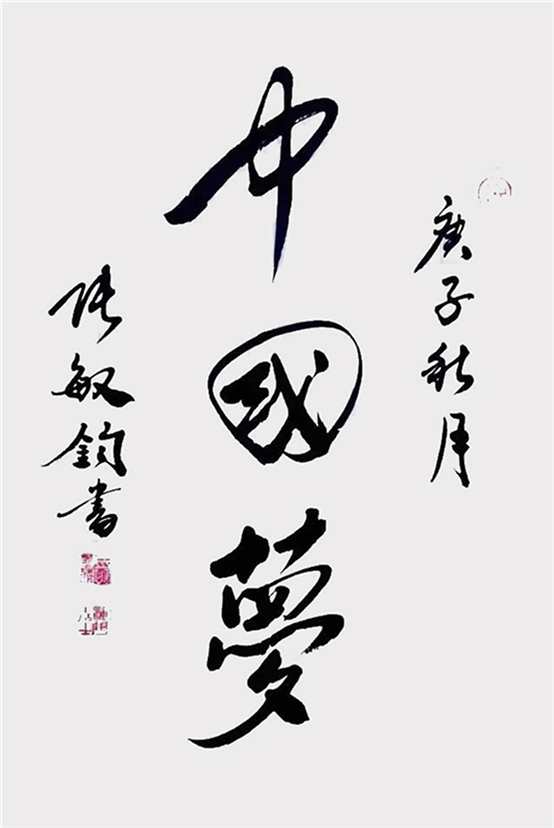 庚子秋月
中國夢
張敏鈞書